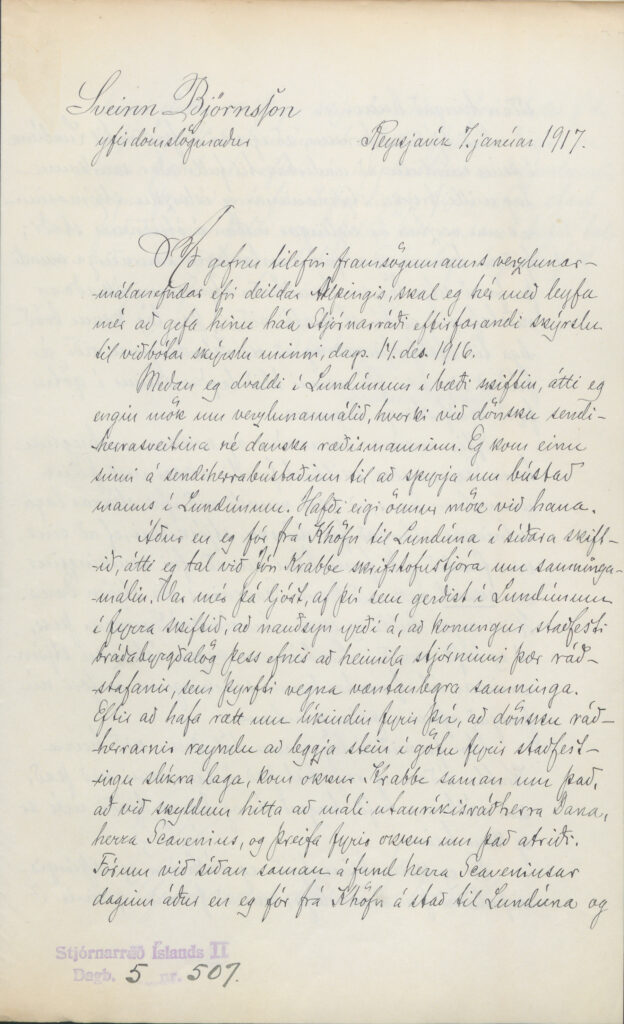 Sveinn Björnsson
yfirdómslögmaður Reykjavík 7. janúar 1917.
Að gefnu tilefni framsögumanns verzlunar-
-málanefndar efri deildar Alþingis, skal eg hér með leyfa
mér að gefa hinu háa Stjórnarráði eftirfarandi skýrslu
til viðbótar skýrslu minni, dags. 14. des. 1916.
Meðan eg dvaldi í Lundúnum í bæði skiftin, átti eg
engin mök um verzlunarmálið, hvorki við dönsku sendi-
-herrasveitina né danska ræðismanninn. Eg kom einu
sinni á sendiherrabústaðinn til að spyrja um bústað
manns í Lundúnum. Hafði eigi önnur mök við hana.
Áður en eg fór frá Khöfn til Lundúna í síðara skift-
-ið, átti eg tal við Jón Krabbe skrifstofustjóra um samninga-
málin. Var mér þá ljóst, af því sem gerðist í Lundúnum
í fyrra skiftið, að nauðsyn yrði á, að konungur staðfesti
bráðabyrgðalög þess efnis að heimila stjórninni þær ráð-
-stafanir, sem þyrfti vegna væntanlegra samninga.
Eftir að hafa rætt um líkindin fyrir því, að dönsku ráð-
-herrarnir reyndu að leggja stein í götu fyrir staðfest-
-ingu slíkra laga, kom okkur Krabbe saman um það,
að við skyldum hitta að máli utanríkisráðherra Dana,
herra Scavenius, og þreifa fyrir okkur um það atriði.
Fórum við síðan saman á fund herra Scaveniusar
daginn áður en eg fór frá Khöfn á stað til Lundúna og
Stjórnarráð Íslands II
Dagb. 5 nr. 507.